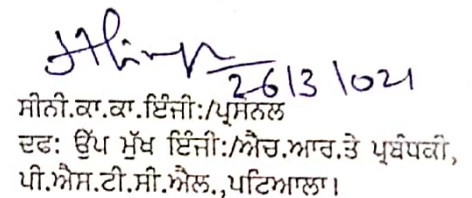 26/3/021
ਸੀਨੀ.ਕਾ.ਕਾ.ਇੰਜੀ:/ਪ੍ਰਸੋਨਲ
ਦਫ: ਉੱਪ ਮੁੱਖ ਇੰਜੀ:/ਐਚ.ਆਰ.ਤੇ ਪ੍ਰਬੰਧਕੀ,
ਪੀ.ਐਸ.ਟੀ.ਸੀ.ਐਲ.,ਪਟਿਆਲਾ।